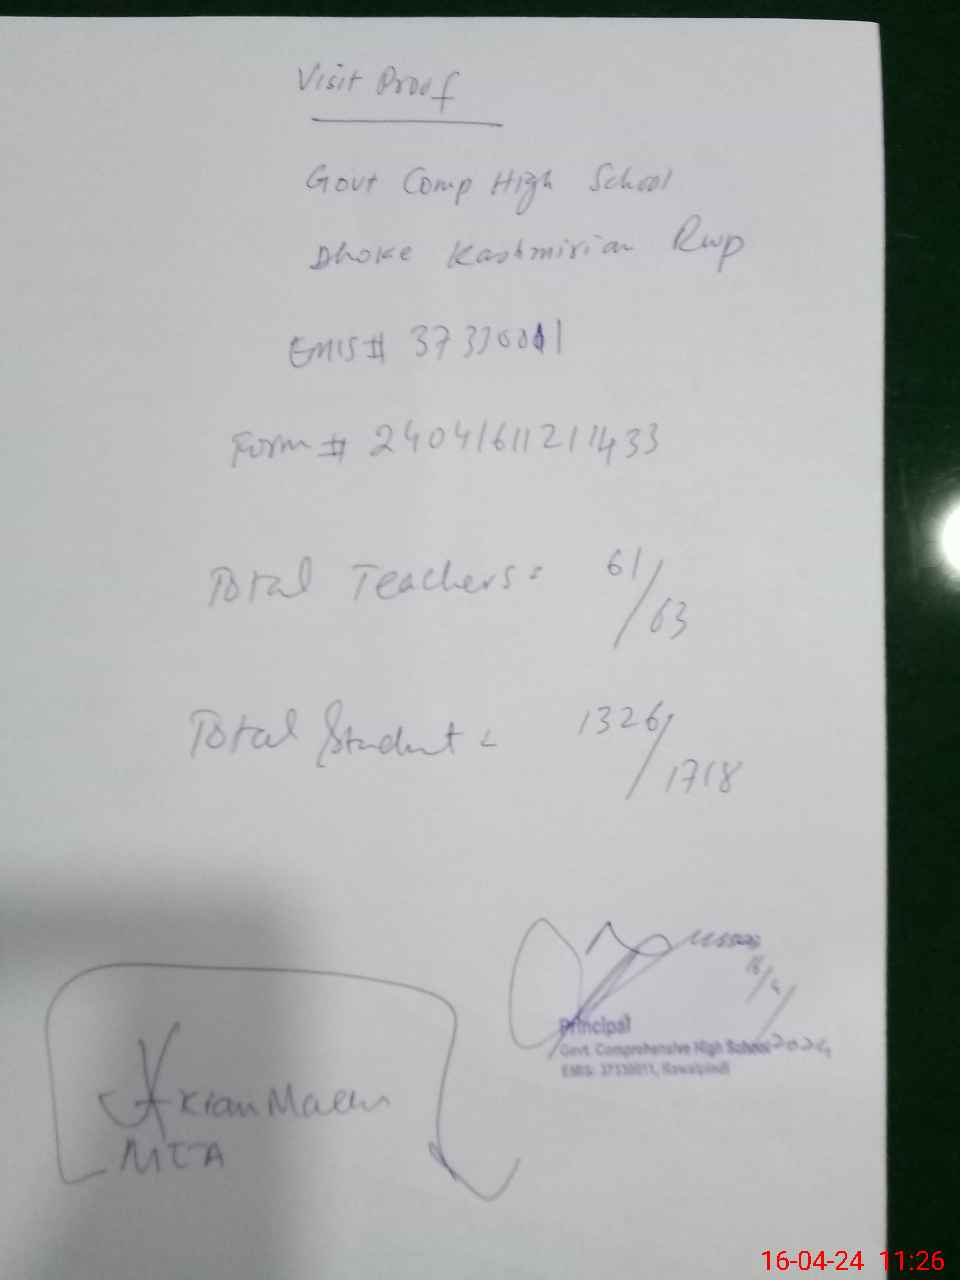 Visit Proof
Govt Comp High School
Dhoke Kashmirian Rwp
EMIS# 37330011
Form # 24041611211433
Total Teachers: 61/63
Total Student: 1326/1718
16/4/2024
Principal
Govt. Comprehensive High School
EMIS: 37330011, Rawalpindi
MCA
16-04-24 11:26